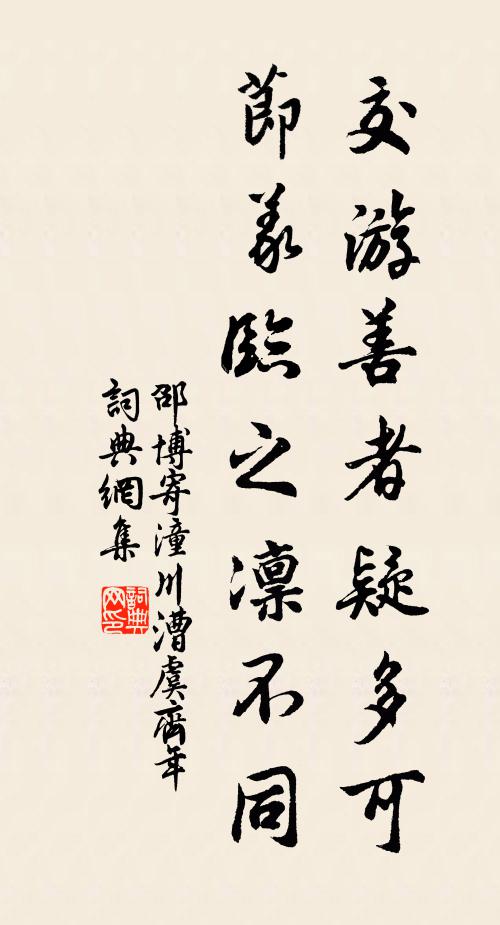 交游善者疑多可
節義臨之凛不同
邵博寄潼川漕虞齊年
詞典網集
詞典
网印